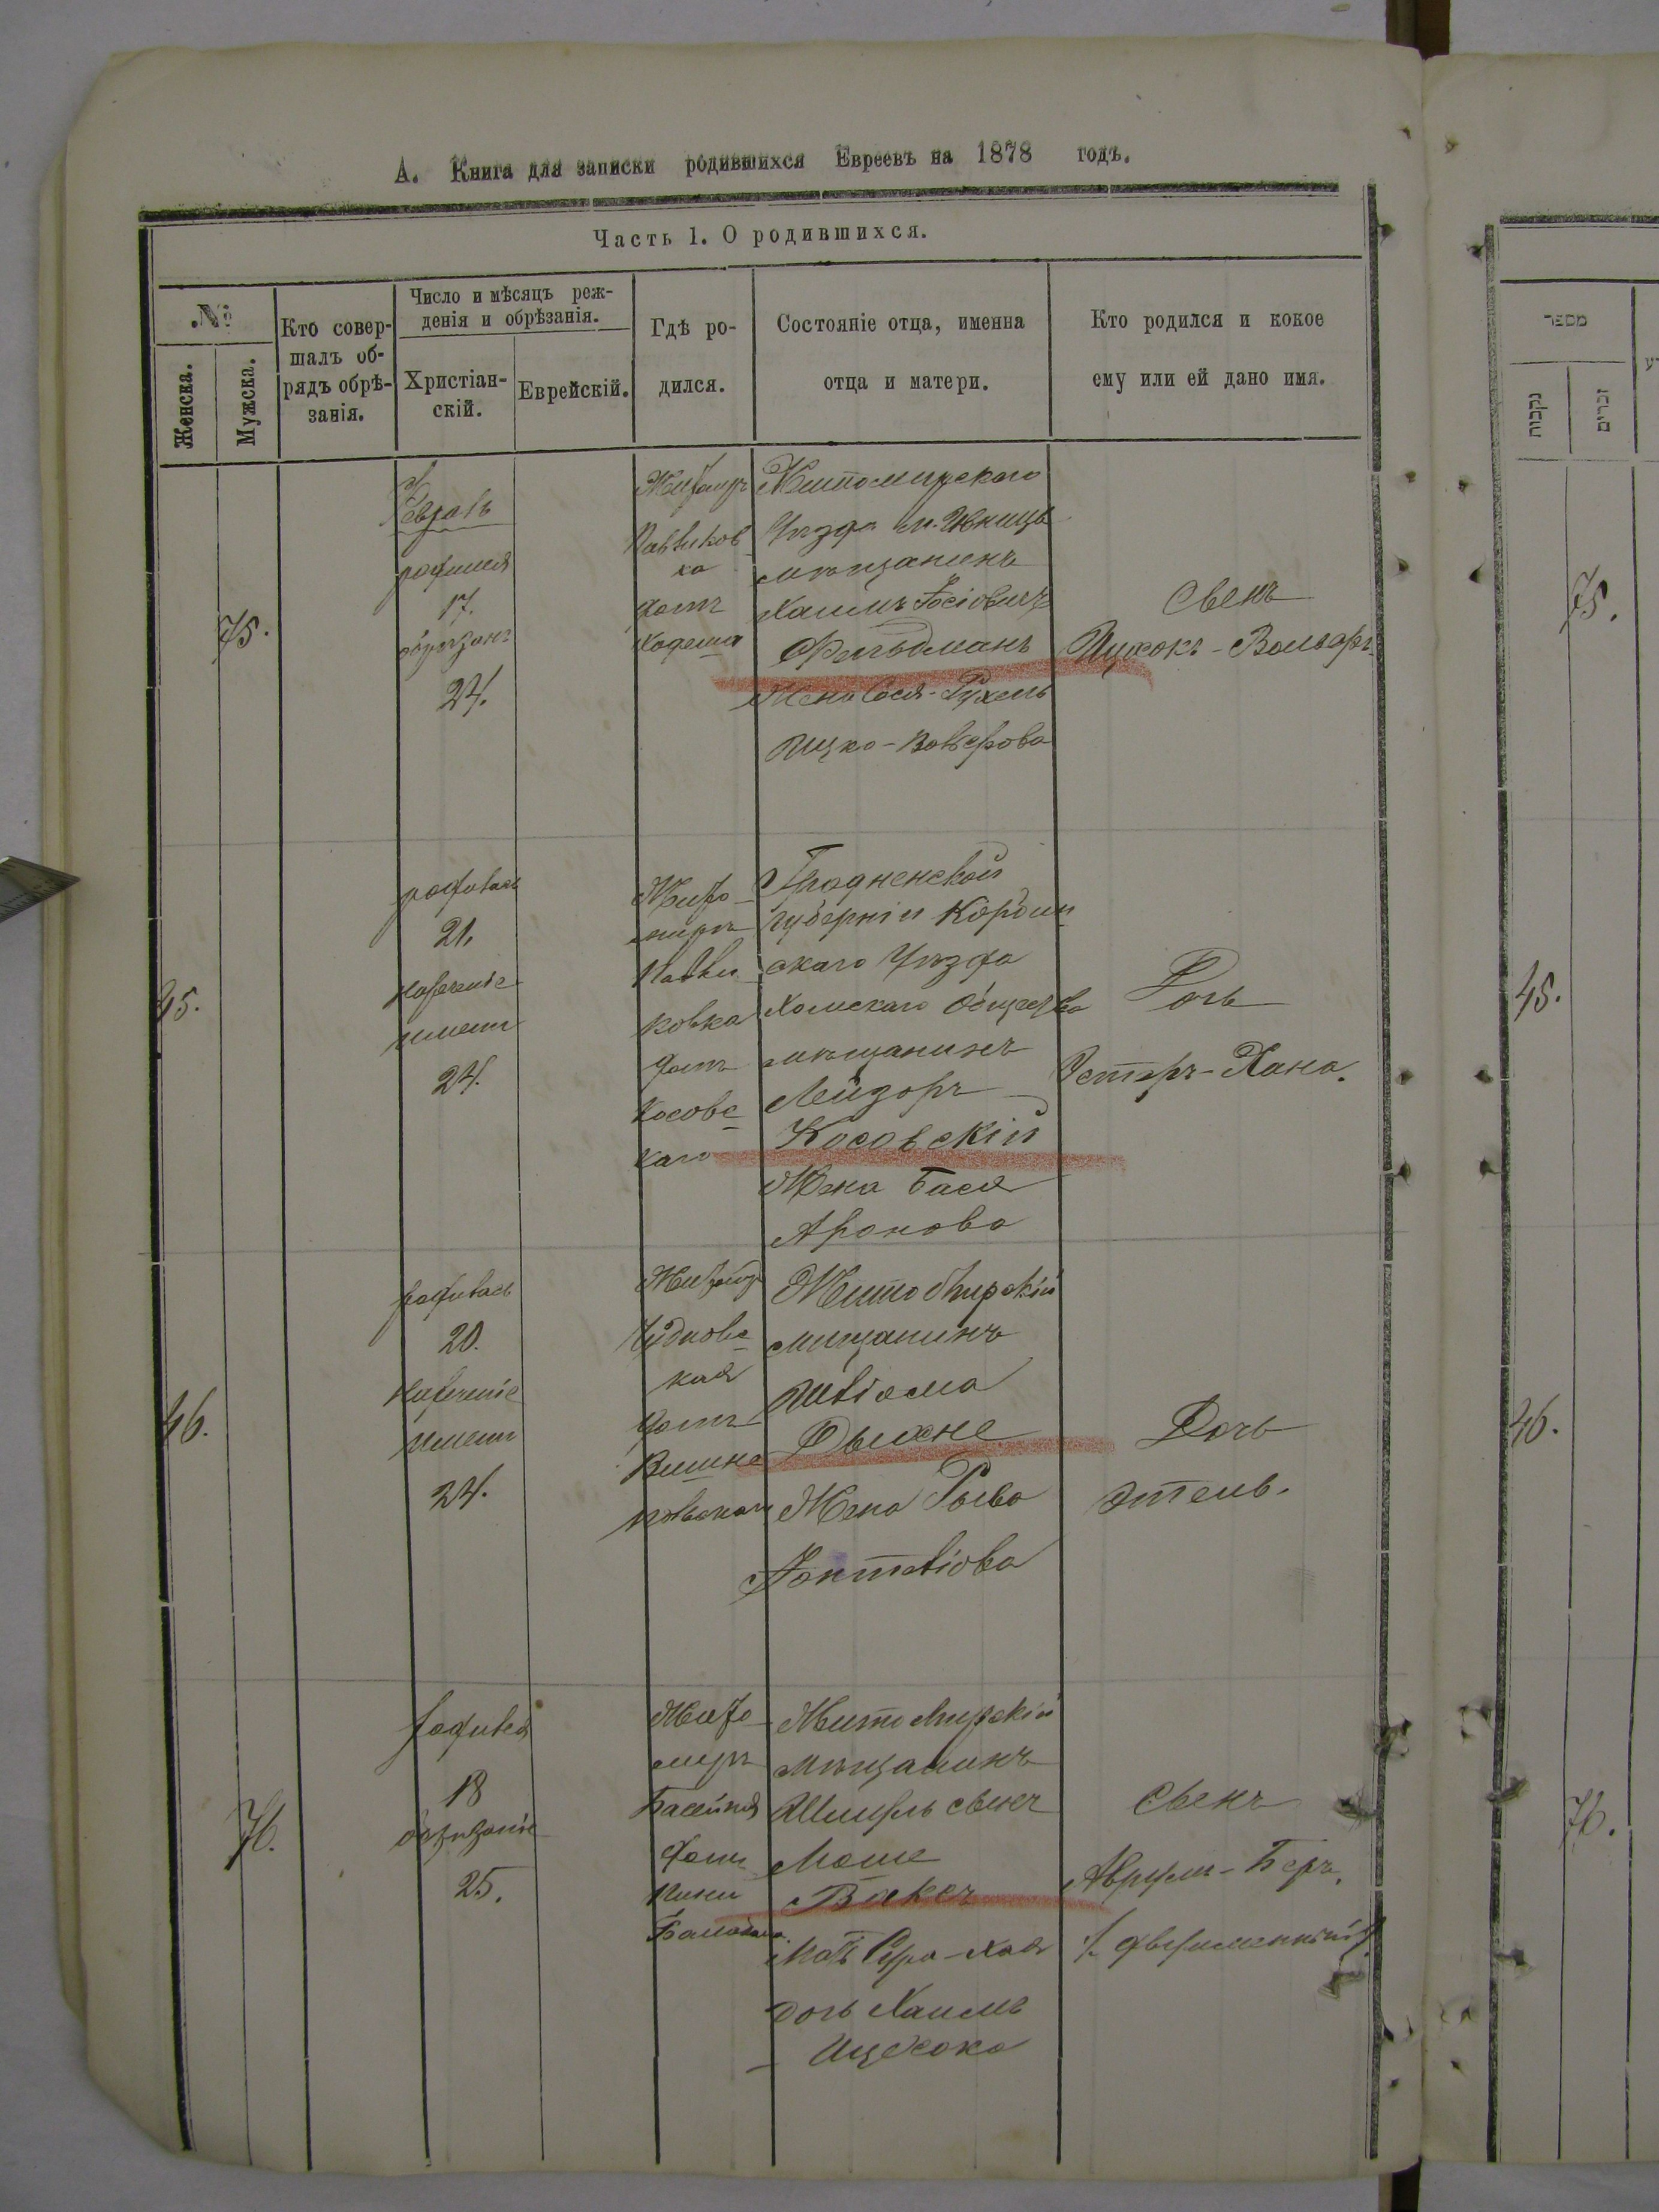 А. Книга для записки родившихся Евреевъ на 1878 годъ.
Часть 1. О родившихся.
№
Женска.
Мужска.
Кто совер-
шалъ об-
рядъ обрѣ-
занія.
Число и мѣсяцъ реж-
денія и обрѣзанія.
Христіан-
скій.
Еврейскій.
Гдѣ ро-
дился.
Состояніе отца, именна
отца и матери.
Кто родился и кокое
ему или ей дано имя.
75.
Февраль
родился
17.
24.
Житомиръ
Павликов
ка
домъ
Житомирскаго
Уѣзда м. Ивницы
мѣщанинъ
Хаимъ Іосіовичъ
Фельдманъ
Жена Сося-Рухель
Ицко-Вольфова
Сынъ
Ицхокъ-Вольфъ
45.
родилась
21.
нареченіе
имени
24.
Жито-
миръ
Павли
ковка
домъ
Косовс-
каго
Гродненской
губерніи Кобрин
скаго Уѣзда
Хомскаго Общества
мѣщанинъ
Лейзоръ
Косовскій
Жена Бася
Аронова
Дочь
Эстеръ-Хана.
46.
родилась
20.
нареченіе
имени
24.
Житомир
Чудновс-
кая
домъ
Житомирскій
мищанинъ
Дыхне
Жена Рыва
Дочь
Этель.
76.
родился
18
обрѣзаніе
25.
Жито-
миръ
домъ
Житомирскій
мѣщанинъ
Шмуль сынъ
Моше
Ваксъ
Мать Сура-Хая
дочь Хаимъ
Ицхока
Сынъ
Аврумъ-Беръ.
/. двуименный /.
מספר
נקבות
זכרים
75.
45.
46.
76.